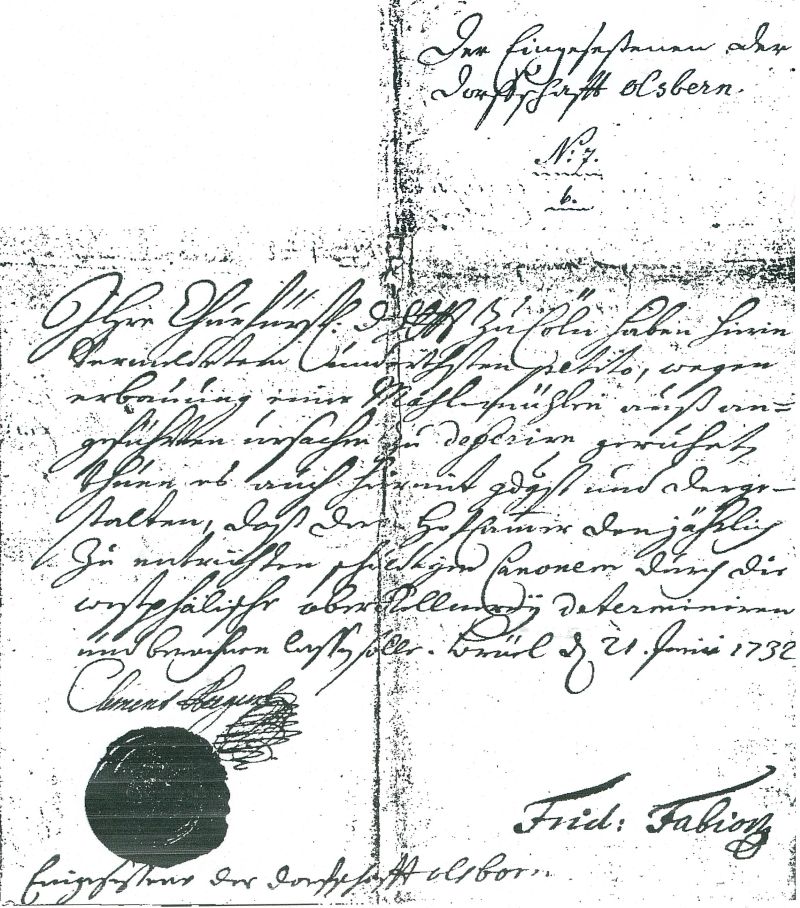 Der Eingesessenen der
Dorffschafft Olsbern.
N: 7.
6.
Ihre Churfürstl: Dhlt zu Cölln haben hierin
vermeldetem petito, wegen
erbauung einer Mahlmühlen auß an=
geführten ursachen zu deferiren geruhet,
thuen es auch hiermit gdgst und derge-
stalten, daß dero Hofcammer den jährlich
zu entrichten schuldigen Canonem durch die
westphälische oberKellnerey determiniren
und berechnen lassen solle. Brüel d 21. Junii 1732
Clement August
Frid: Fabion
Eingesessene der dorffschafft olsborn